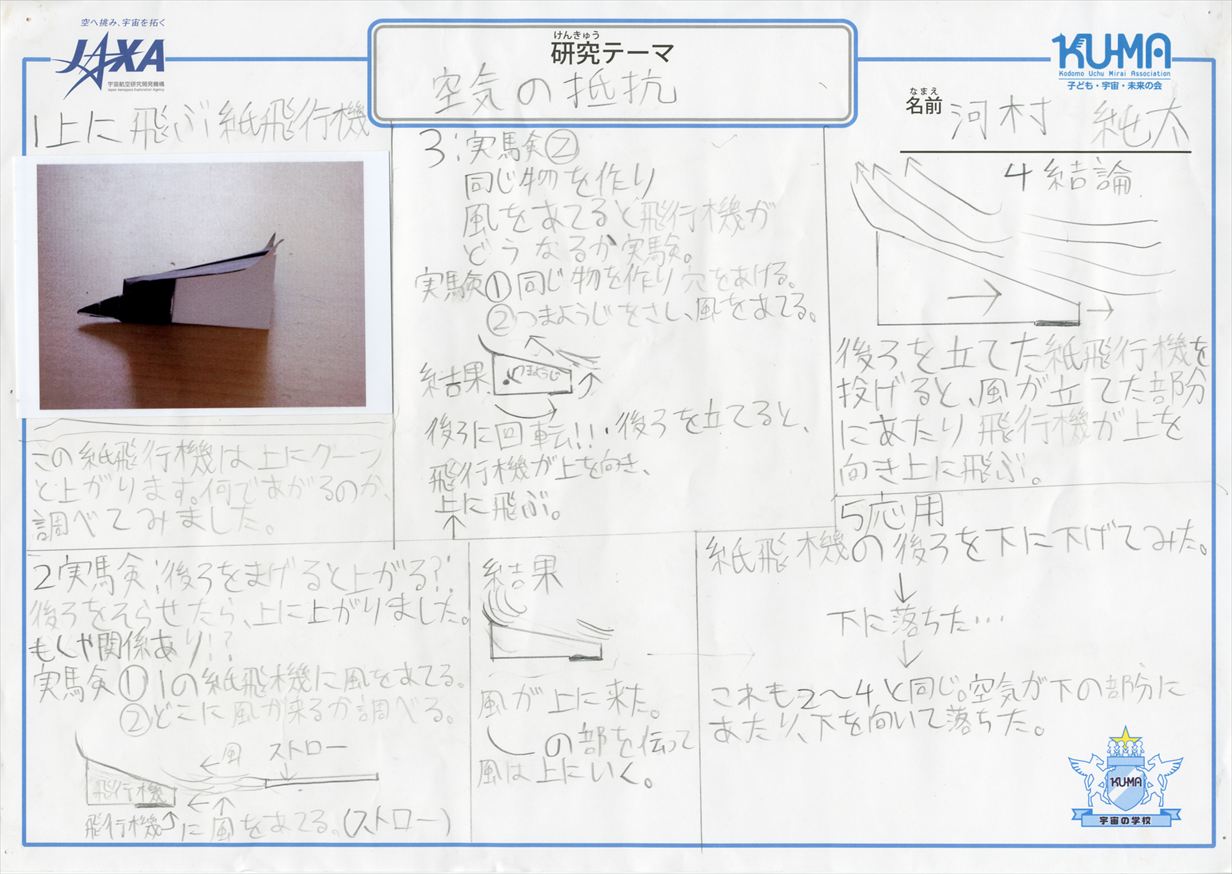 空へ挑み、宇宙を拓く
JAXA
宇宙航空研究開発機構
Japan Aerospace Exploration Agency
けんきゅう
研究テーマ
空気の抵抗
KU-MA
Kodomo Uchu Mirai Association
子ども・宇宙・未来の会
なまえ
名前 河村 純太
1上に飛ぶ紙飛行機
この紙飛行機は上にクーッ
と上がります。何であがるのか、
調べてみました。
2実験:後ろをまげると上がる?
後ろをそらせたら、上に上がりました。
もしや関係あり!?
実験①1の紙飛行機に風をあてる。
②どこに風が来るか調べる。
←風 ストロー
飛行機
飛行機↑に風をあてる。(ストロー)
結果
風が上に来た。
の部を伝って
風は上にいく。
3:実験②
同じ物を作り
風をあてると飛行機が
どうなるか実験。
実験①同じ物を作り穴をあける。
②つまようじをさし、風をあてる。
結果
つまようじ
後ろに回転!!・後ろを立てると、
飛行機が上を向き、
上に飛ぶ。
4結論
後ろを立てた紙飛行機を
投げると、風が立てた部分
にあたり飛行機が上を
向き上に飛ぶ。
5応用
紙飛機の後ろを下に下げてみた。
↓
下に落ちた…
↓
これも2〜4と同じ。空気が下の部分に
あたり、下を向いて落ちた。
KUMA
宇宙の学校